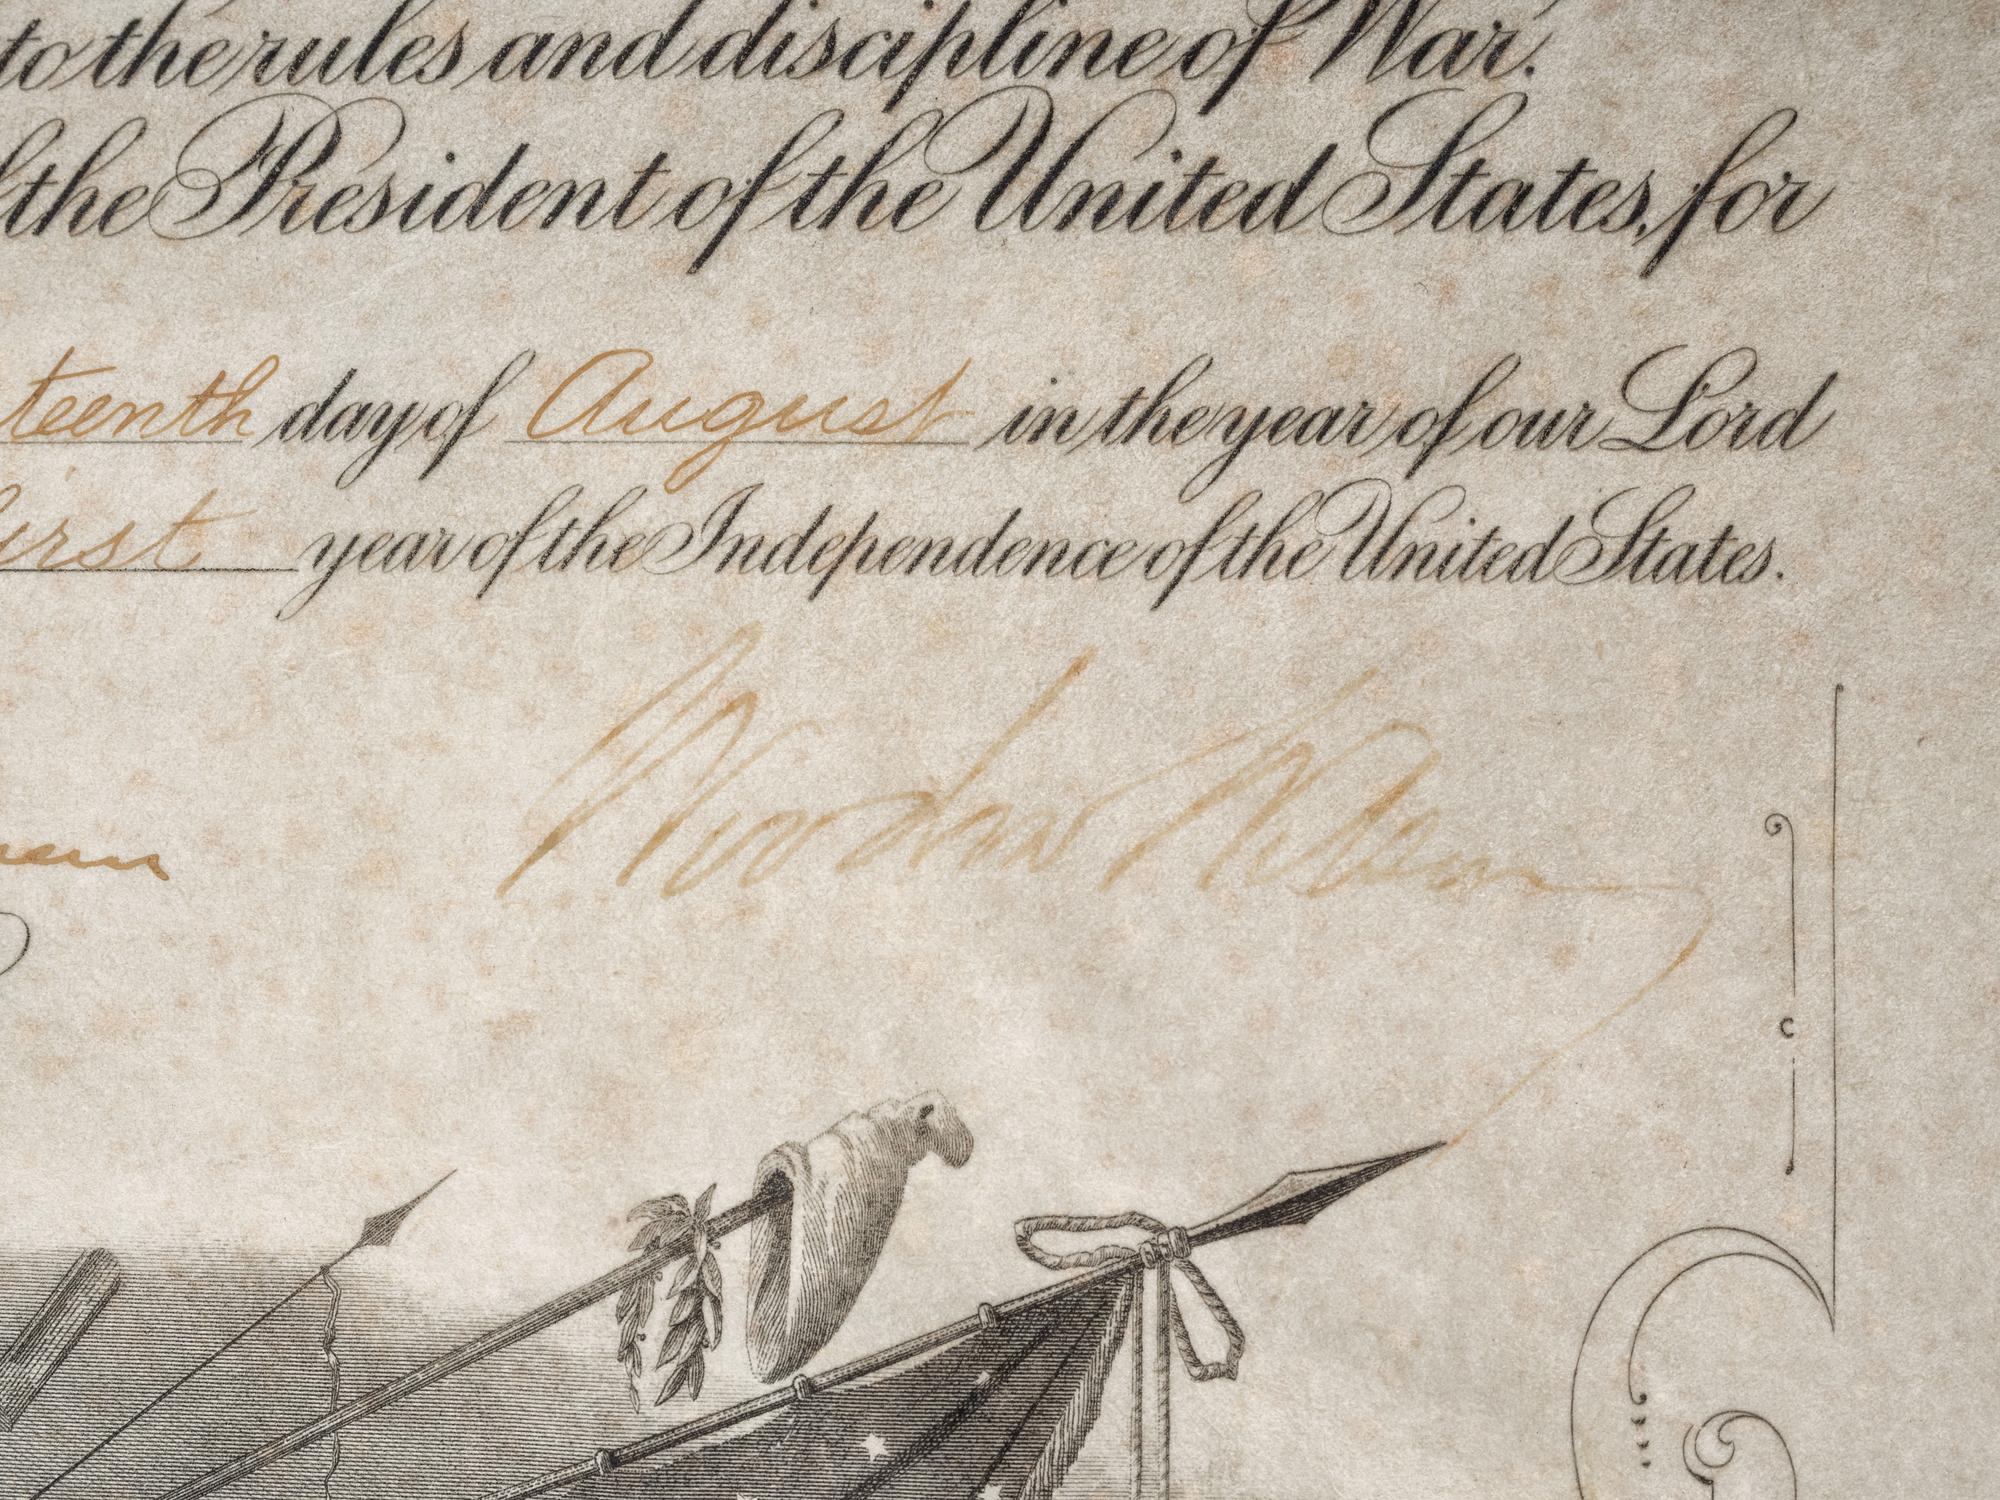 to the rules and discipline of War.
the President of the United States, for
teenth day of August in the year of our Lord
irst year of the Independence of the United States.
Woodrow Wilson